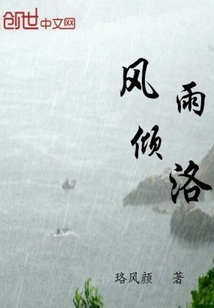 创世中文网
风倾
雨洛
珞风颜 著